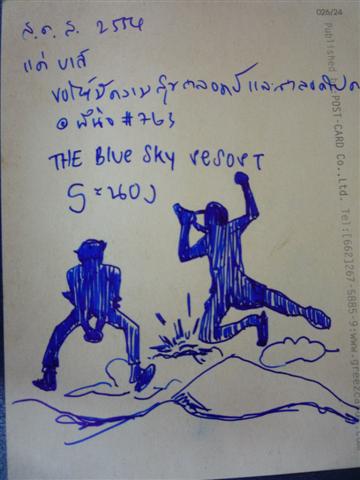 026/24
ส.ค.ส. 2554
แด่ บาส์
ขอให้มีความสุขตลอดปี และตลอดไป
@ #763
THE Blue Sky resort
ระนอง
Published POST-CARD Co.,Ltd. Tel:(662)267-5885-9:www.greececa